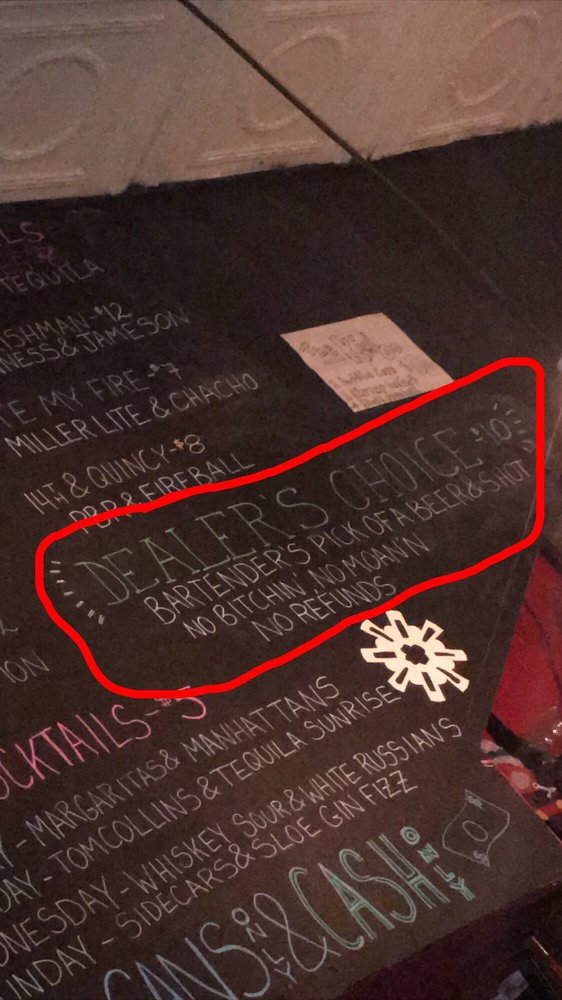 TEQUILA
ISHMAN-$12
NESS & JAMESON
E MY FIRE-$7
MILLER LITE & CHACHO
14TH & QUINCY-$8
PBR & FIREBALL
DEALER'S CHOICE $10
BARTENDER'S PICK OF A BEER & SHOT
NO BITCHIN' NO MOAN'N
NO REFUNDS
ION
OCKTAILS-$5
Y - MARGARITAS & MANHATTANS
DAY - TOM COLLINS & TEQUILA SUNRISE
DNESDAY - WHISKEY SOUR & WHITE RUSSIANS
UNDAY - SIDECARS & SLOE GIN FIZZ
CANS ONLY & CASH ONLY